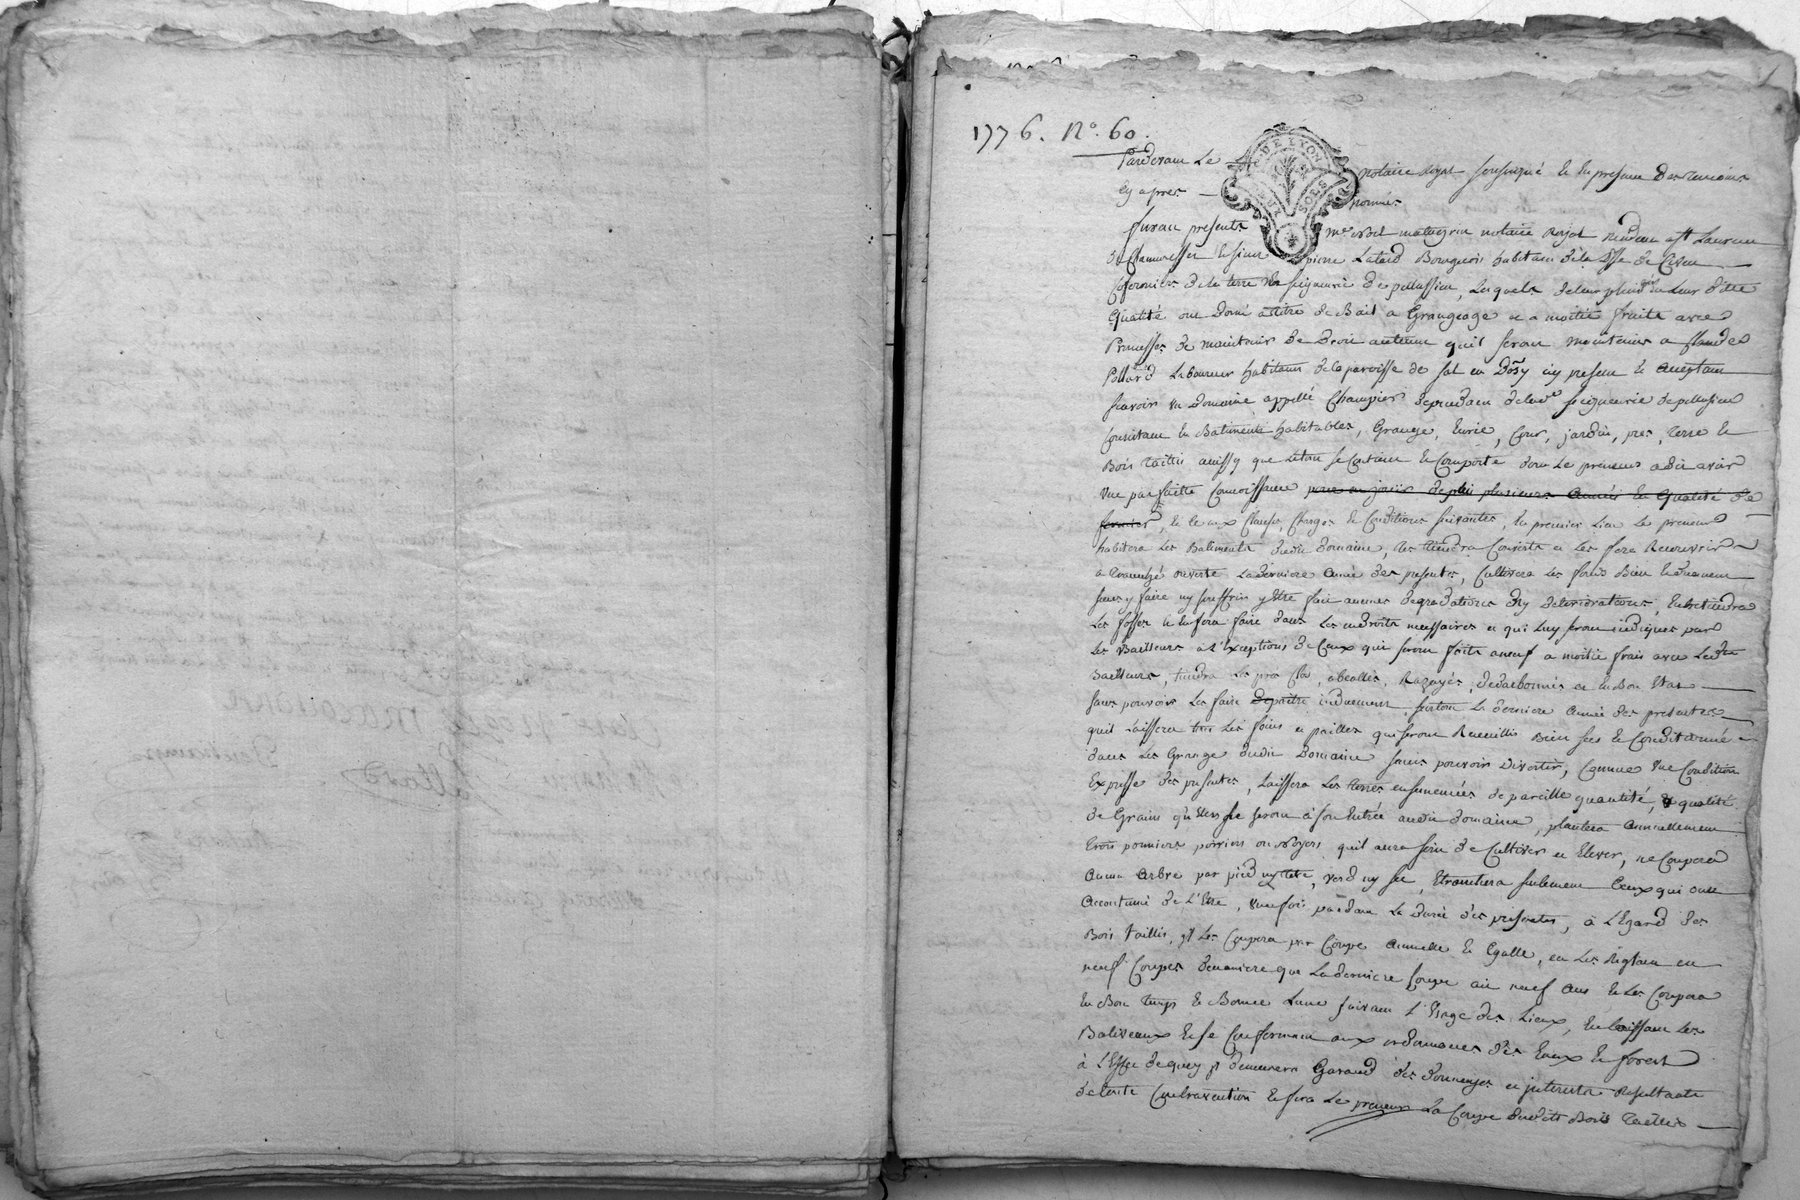 1776. N.° 60.
Pardevant Le
DE LYON
DEUX SOLS
notaire Royal soussigné et en presence des temoins
cy apres nommés
furent presents me notel matagrin notaire Royal Residant a st Laurent
de Chamousset et sieur pierre Latard Bourgeois habitant de la
Cofermiers de la terre et seigneurie de pellussieu, Lesquels de leur plein gré en Leur ditte
Qualité ont donné a titre de Bail a Grangeage et a moitié fruits avec
Promesse de maintenir de Droit autant qu'il seront maintenus a Claude
Pollard Laboureur habitant de la paroisse de sal en Donzy icy present et acceptant
scavoir un Domaine appellé Champier dependant de lad.e seigneurie de pellussieu
Consistant en Batiments habitables, Grange, Eurie, Cour, jardin, pres, Terre et
Bois Taillis ainssy que letout se Contient et Comporte dont Le preneur a dit avoir
une parfaitte Connoissance pour en jouir depuis plusieurs années en Qualité de
fermier, et ce aux Clauses Charges et Conditions suivantes, en premier Lieu Le preneur
habitera Les Batiments dudit domaine, Les tiendra Couverts et Les fera Recouvrir
a tranché ouverte La derniere année des presentes, Cultivera Les fonds Bien et duement
sans y faire ny souffrir y Etre fait aucunes degradations Ny deteriorations, Entretiendra
Les fosses et en fera faire dans Les endroits necessaires et qui Luy seront indiqués par
Les Bailleurs a l'Exceptions de Ceux qui seront faits aneuf a moitié frais avec Lesdts
Bailleurs, tiendra Les pres Clos, abealés, Razoyés, dedarbonnés et en Bon Etat
sans pouvoir Les faire depaitre induement surtout La derniere année des presentes
quil Laissera tous Les foins et pailles qui seront Recueillis Bien secs et Conditionné
dans Les Grange dudit Domaine sans pouvoir Divertir, Comme une Condition
Expresse des presentes, Laissera Les terres ensemencées de pareille quantité, et qualité
de Grains qu'elles se seront à son Entrée audit domaine, plantera annuellement
trois pommiers poiriers ou Noyers quil aura soin de Cultiver et Elever, ne Coupera
aucun arbre par pied ny tete, verd ny sec, Etronchera seulement Ceux qui ont
accoutumé de L'Etre, une fois pendant La Durée des presentes, à L'Egard des
Bois taillis, il Les Coupera par Coupe annuelle et Egalle, en Les Reglant en
neuf Coupes demaniere que La derniere Coupe ait neuf ans et Les Coupera
en Bon temps et Bonne Lune suivant L'Usage des Lieux, en laissant Les
Baliveaux et se Conformant aux ordonnances des Eaux et forest
à L'Effet dequoy il demeurera Garand des dommages et interests Resultants
de toute Contravention et fera Le preneur La Coupe desdits Bois taillis